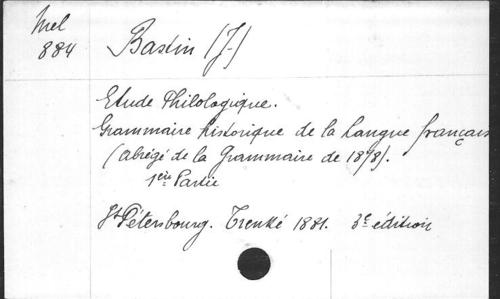 Mel
884
Bastin (J.)
Etude Philologique.
Grammaire historique de la langue français
(Abrégé de la Grammaire de 1878).
1ère Partie
St Pétersbourg. Trenké 1881. 3e édition